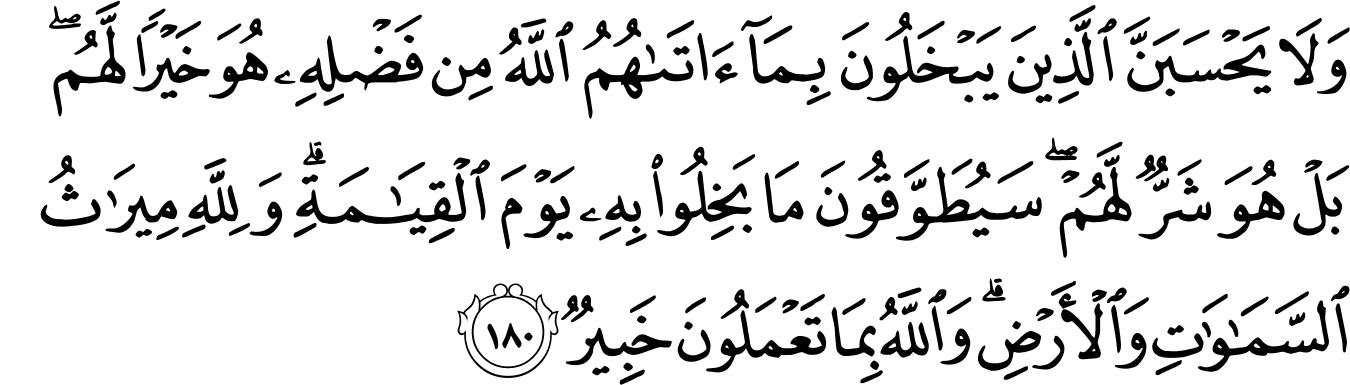 وَلَا يَحْسَبَنَّ ٱلَّذِينَ يَبْخَلُونَ بِمَآ ءَاتَىٰهُمُ ٱللَّهُ مِن فَضْلِهِۦ هُوَ خَيْرًا لَّهُم ۖ
بَلْ هُوَ شَرٌّ لَّهُمْ ۖ سَيُطَوَّقُونَ مَا بَخِلُوا۟ بِهِۦ يَوْمَ ٱلْقِيَـٰمَةِ ۗ وَلِلَّهِ مِيرَٰثُ
ٱلسَّمَـٰوَٰتِ وَٱلْأَرْضِ ۗ وَٱللَّهُ بِمَا تَعْمَلُونَ خَبِيرٌ ١٨٠